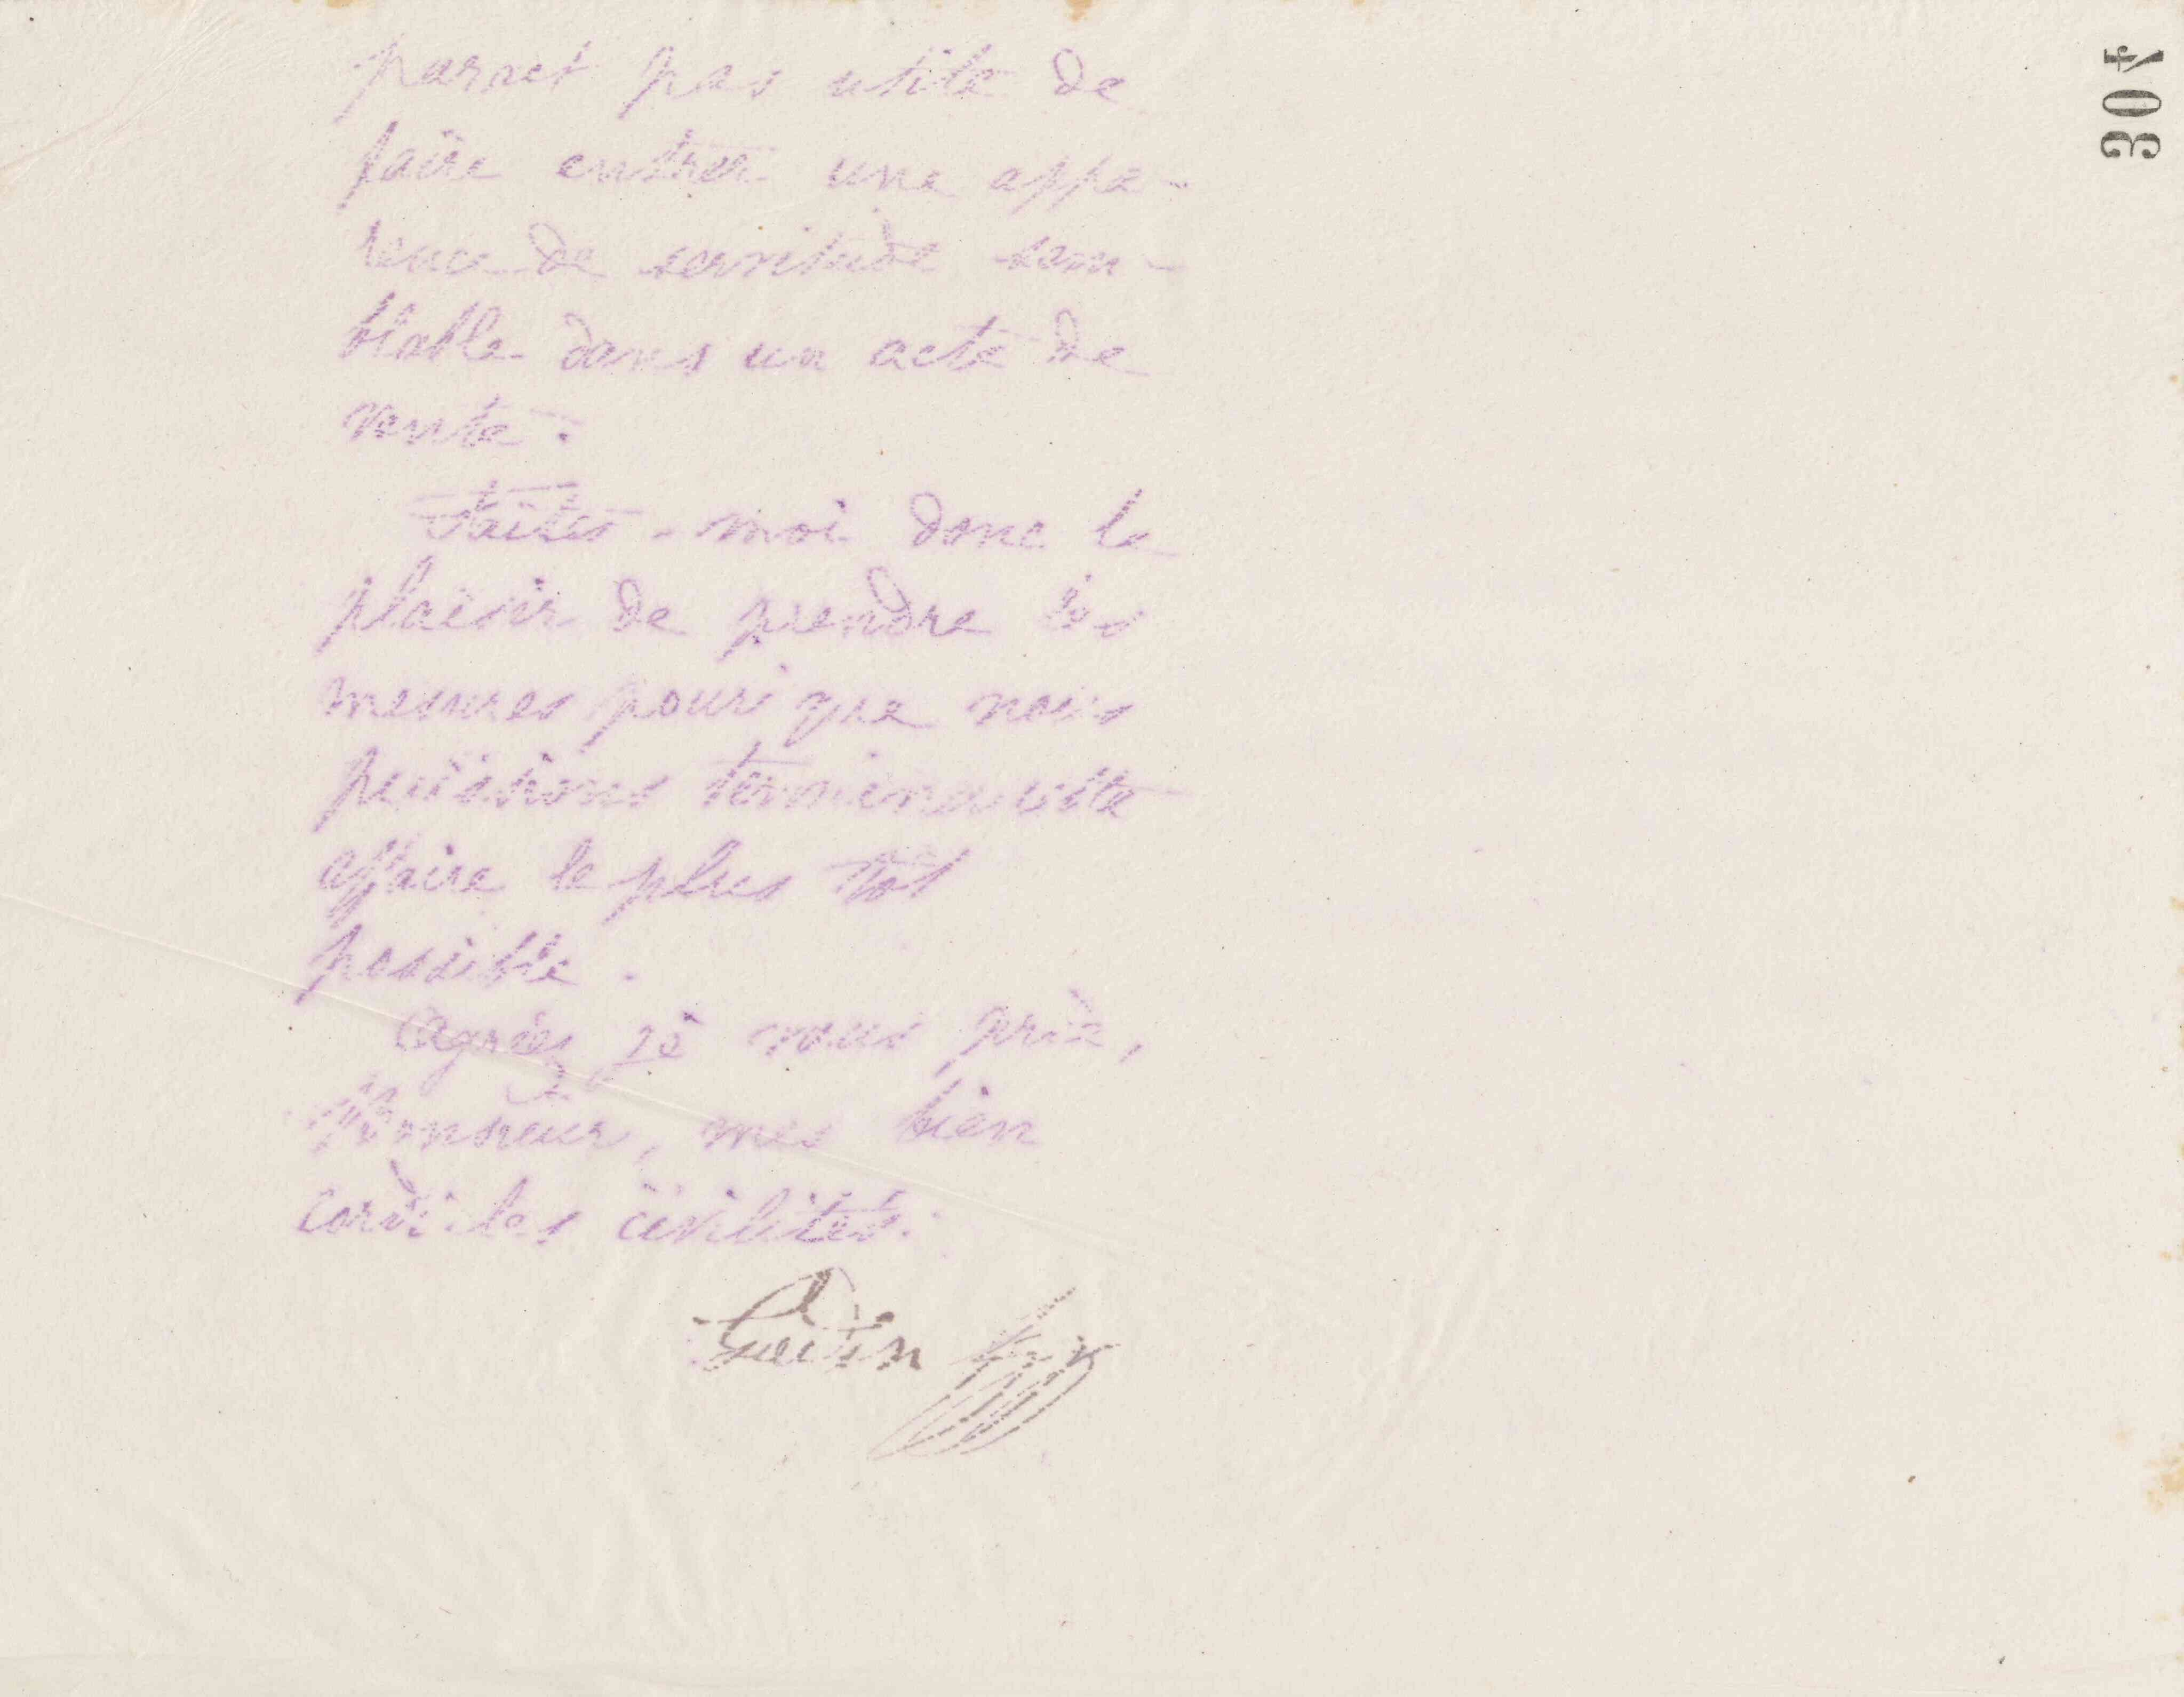 parait pas utile de
faire entrer une appa-
rence de servitude sem-
blable dans un acte de
vente.
Faites-moi donc le
plaisir de prendre vos
mesures pour que nous
puissions terminer cette
affaire le plus tôt
possible.
Agréez je vous prie,
Monsieur, mes bien
cordiales civilités.
Godin
307